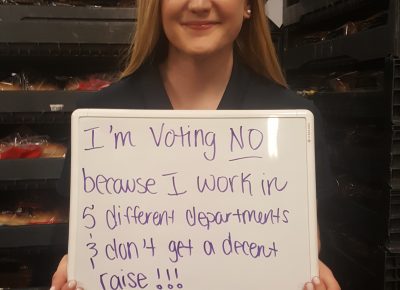 I'm Voting NO
because I work in
5 different departments
& don't get a decent
raise!!!